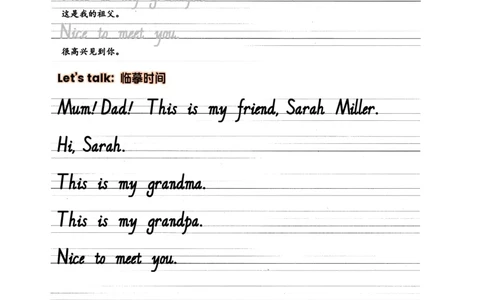 这是我的祖父。
Nice to meet you.
很高兴见到你。
Let's talk: 临摹时间
Mum! Dad! This is my friend, Sarah Miller.
Hi, Sarah.
This is my grandma.
This is my grandpa.
Nice to meet you.